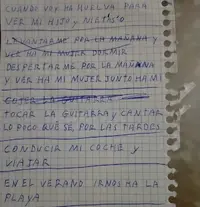 CUANDO VOY HA HUELVA PARA
VER MI HIJO Y NIETISTO
LEVANTARME POR LA MAÑANA Y
VER HA MI MUJER DORMIR
DESPERTARME POR LA MAÑANA
Y VER HA MI MUJER JUNTO HA MI
COJER LA GUITARRA
TOCAR LA GUITARRA Y CANTAR
LO POCO QUE SÉ, POR LAS TARDES
CONDUCIR MI COCHE Y
VIAJAR
EN EL VERANO IRNOS HA LA
PLAYA